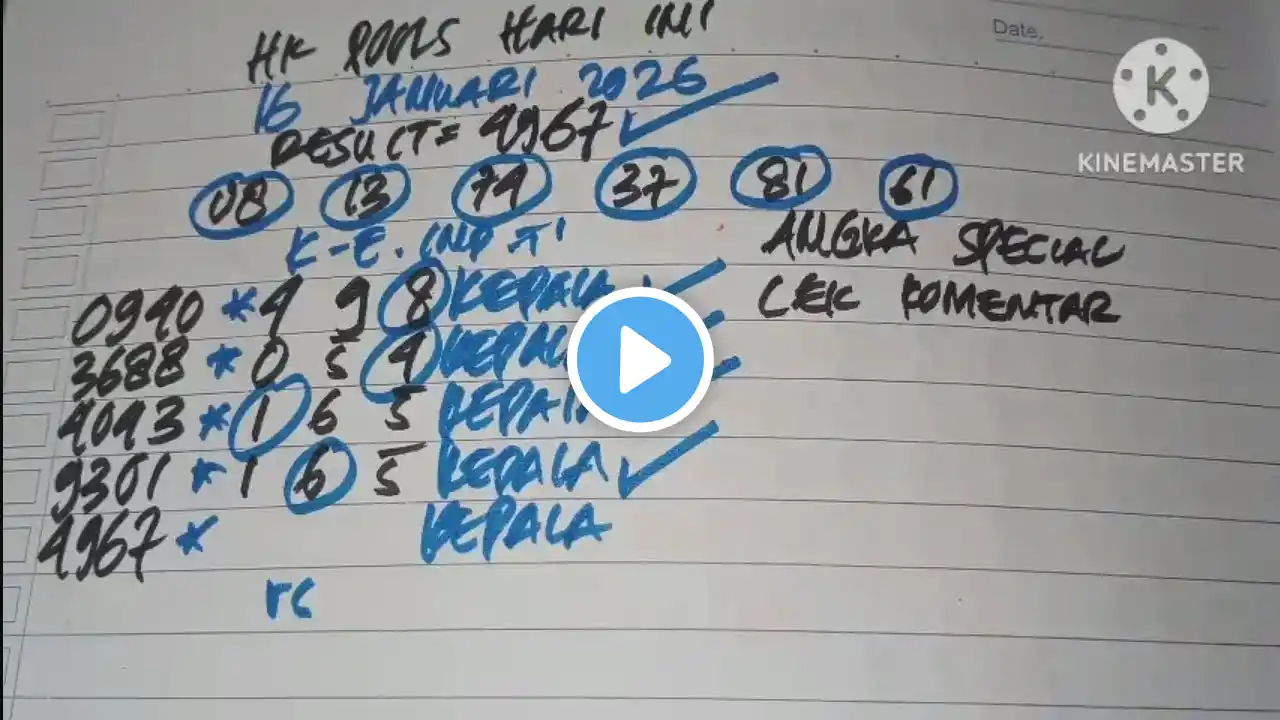 HK POOLS HARI INI
Date.
16 JANUARI 2026
RESULT= 4967
K
KINEMASTER
08 13 74 37 81 61
K-E. INP JT'
ANGKA SPECIAL
CEK KOMENTAR
0940 * 4 9 8 KEPALA
3688 * 0 5 4 KEPAL
4043 * 1 6 5 KEPALA
9301 * 1 6 5 KEPALA
4967 * KEPALA
rc